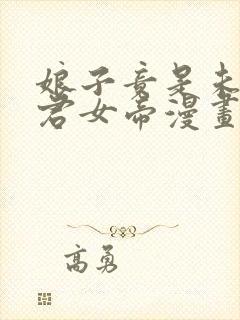 娘子竟是未
君女帝漫畫
高勇